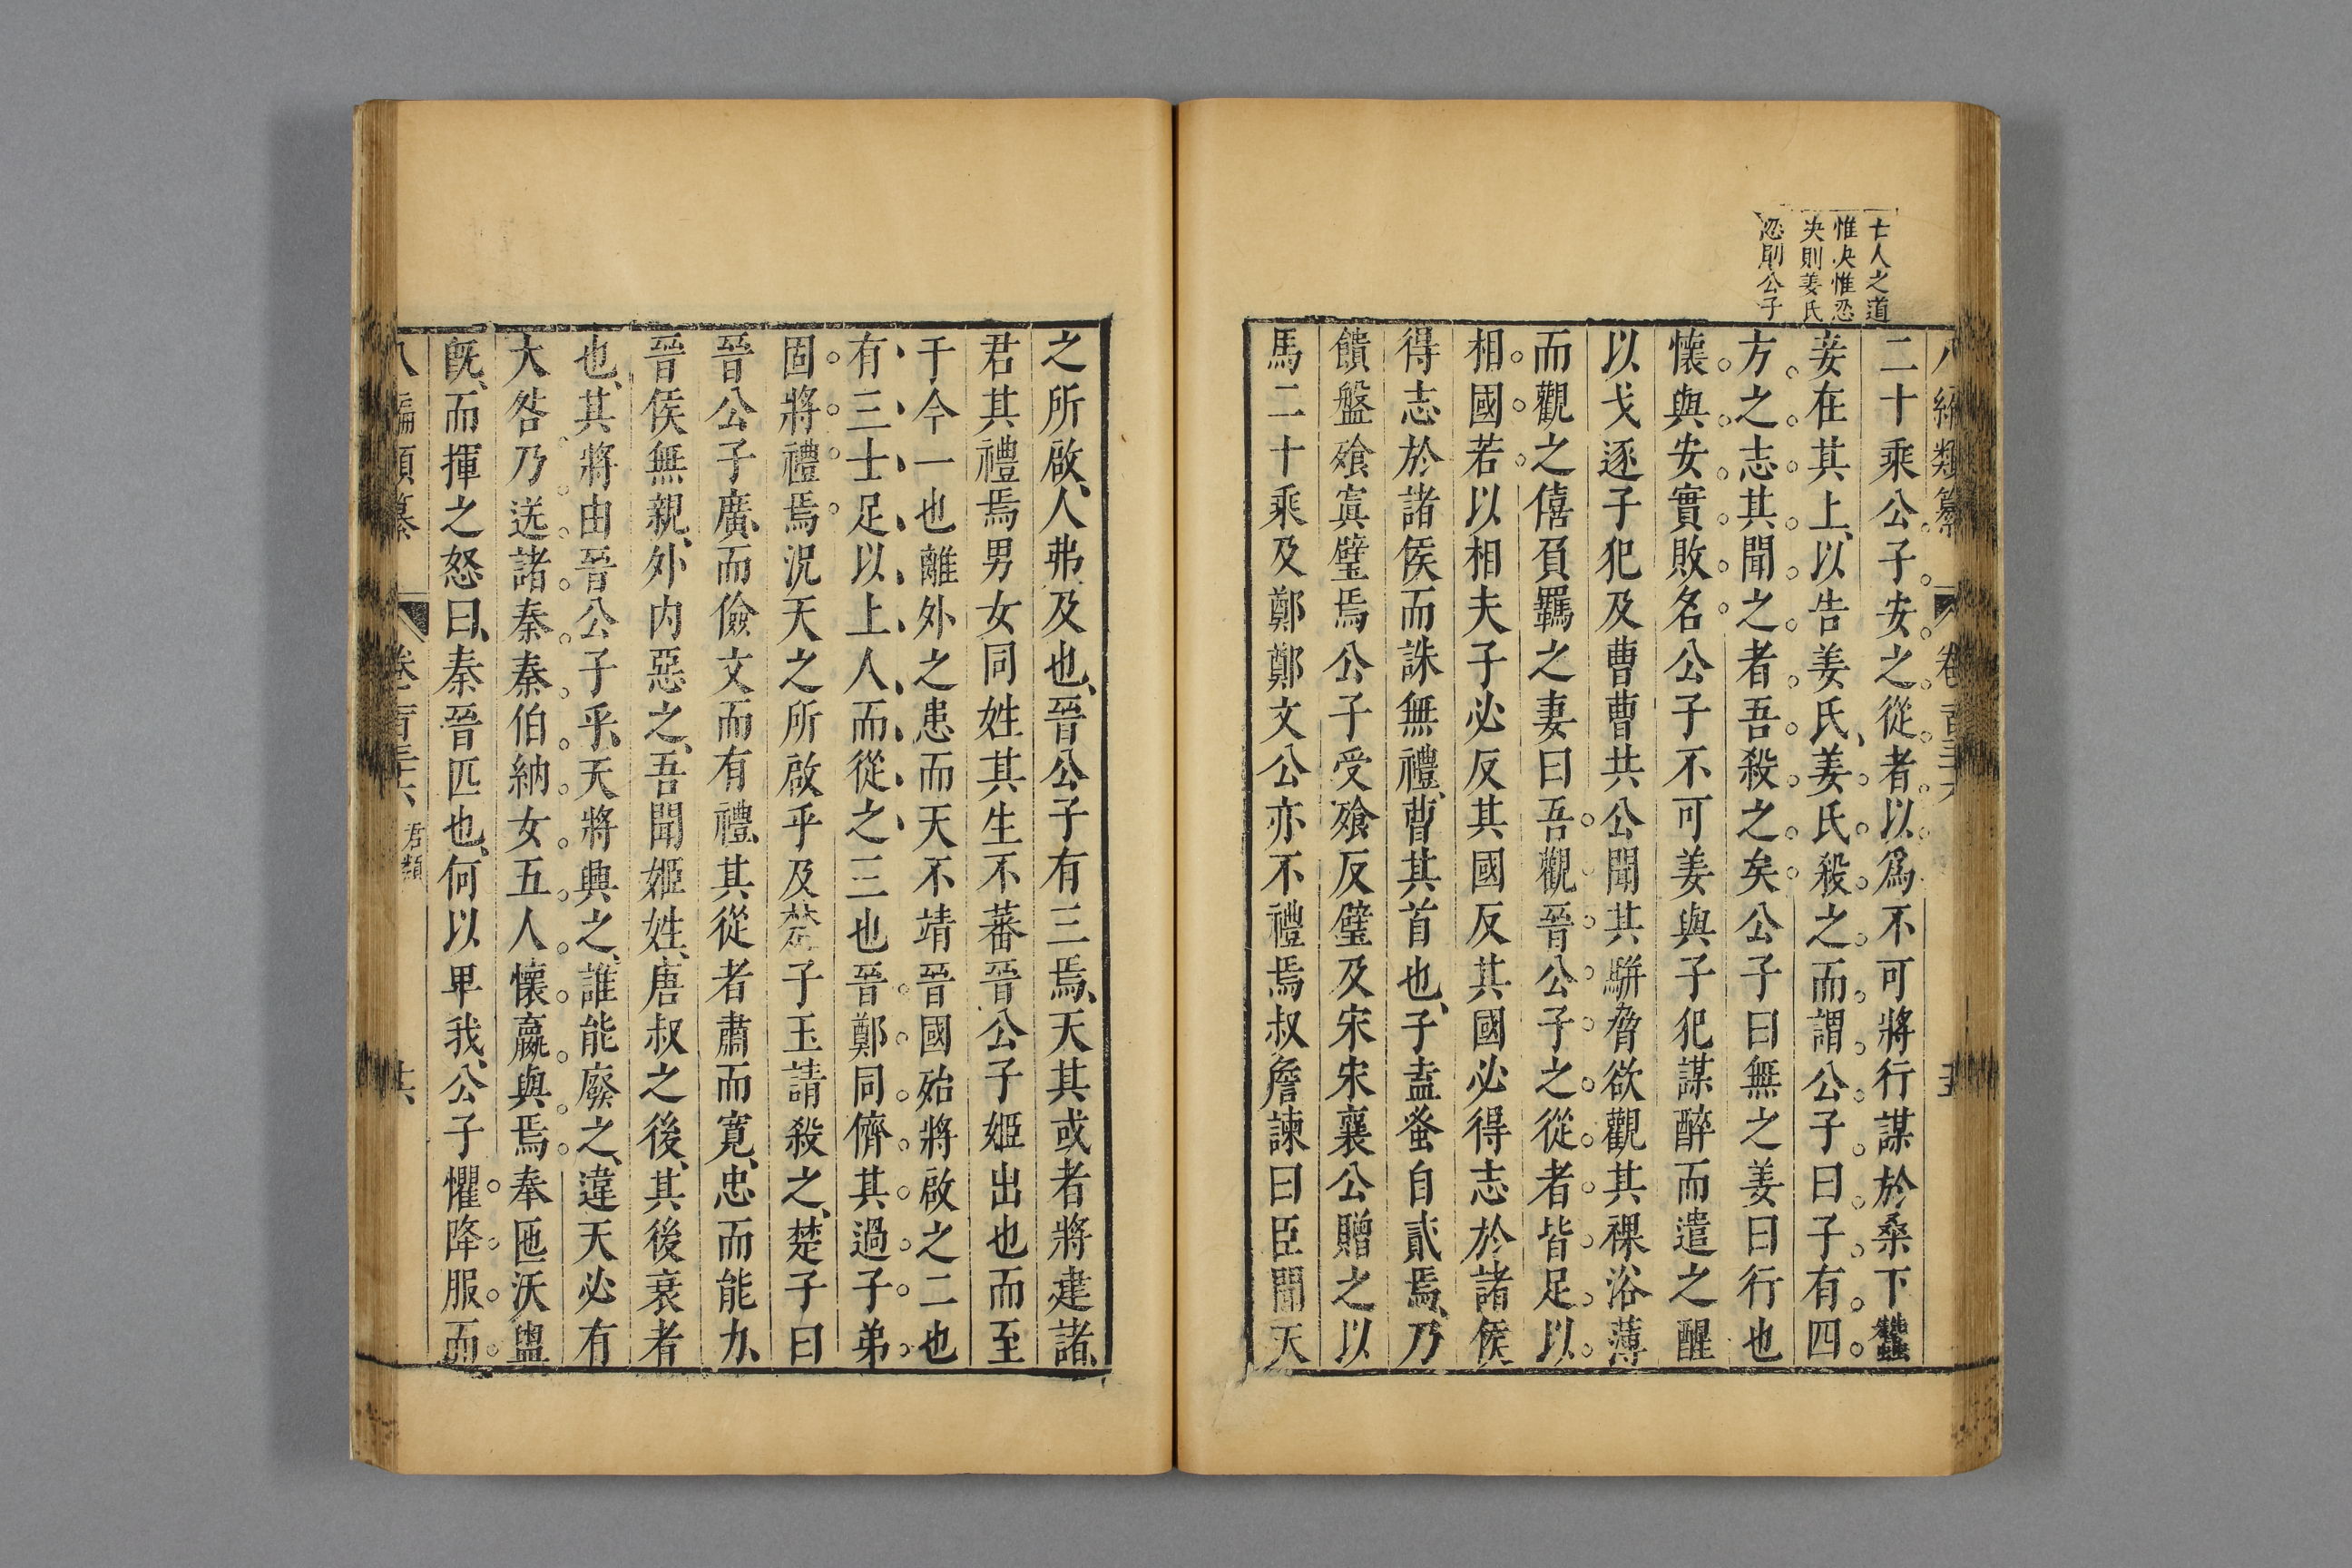 士人之道
惟决惟忍
决則姜氏
忍則公子
二十乘公子安之從者以爲不可將行謀於桑下蠶
妾在其上以告姜氏姜氏殺之而謂公子曰子有四
方之志其聞之者吾殺之矣公子曰無之姜曰行也
懷與安實敗名公子不可姜與子犯謀醉而遣之醒
以戈逐子犯及曹曹共公聞其駢脅欲觀其裸浴薄
而觀之僖負羈之妻曰吾觀晉公子之從者皆足以
相國若以相夫子必反其國反其國必得志於諸侯
得志於諸侯而誅無禮曹其首也子盍蚤自貳焉乃
饋盤飱寘璧焉公子受飱反璧及宋宋襄公贈之以
馬二十乘及鄭鄭文公亦不禮焉叔詹諫曰臣聞天
之所啟人弗及也晉公子有三焉天其或者將建諸
君其禮焉男女同姓其生不蕃晉公子姬出也而至
于今一也離外之患而天不靖晉國殆將啟之二也
有三士足以上人而從之三也晉鄭同儕其過子弟
固將禮焉況天之所啟乎及楚子玉請殺之楚子曰
晉公子廣而儉文而有禮其從者肅而寛忠而能力
晉侯無親外内惡之吾聞姬姓唐叔之後其後衰者
也其將由晉公子乎天將興之誰能廢之違天必有
大咎乃送諸秦秦伯納女五人懷嬴與焉奉匜沃盥
旣而揮之怒曰秦晉匹也何以卑我公子懼降服而
八編類纂 卷一百三十六 君類